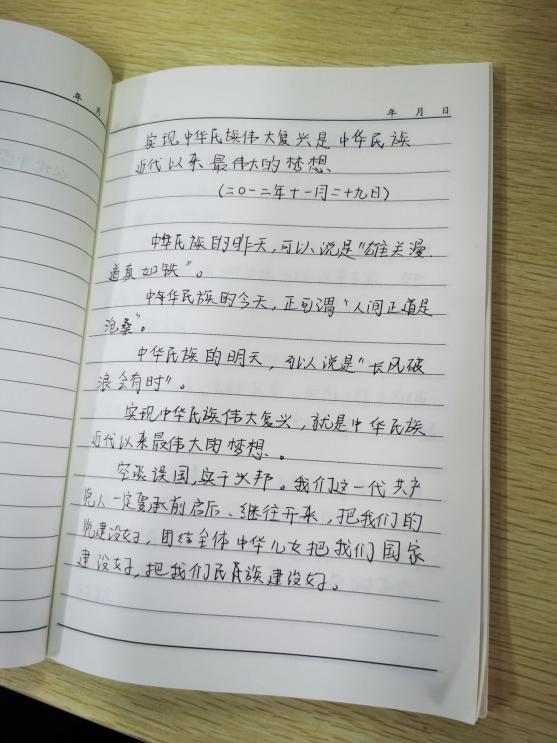 年 月
年 月 日
实现中华民族伟大复兴是中华民族
近代以来最伟大的梦想.
(二〇一二年十一月二十九日)
中华民族的昨天,可以说是“雄关漫
道真如铁”。
中华民族的今天,正可谓“人间正道是
沧桑”。
中华民族的明天,可以说是“长风破
浪会有时”。
实现中华民族伟大复兴,就是中华民族
近代以来最伟大的梦想.。
空谈误国,实干兴邦。我们这一代共产
党人一定要承前启后、继往开来,把我们的
党建设好,团结全体中华儿女把我们国家
建设好,把我们民族建设好。